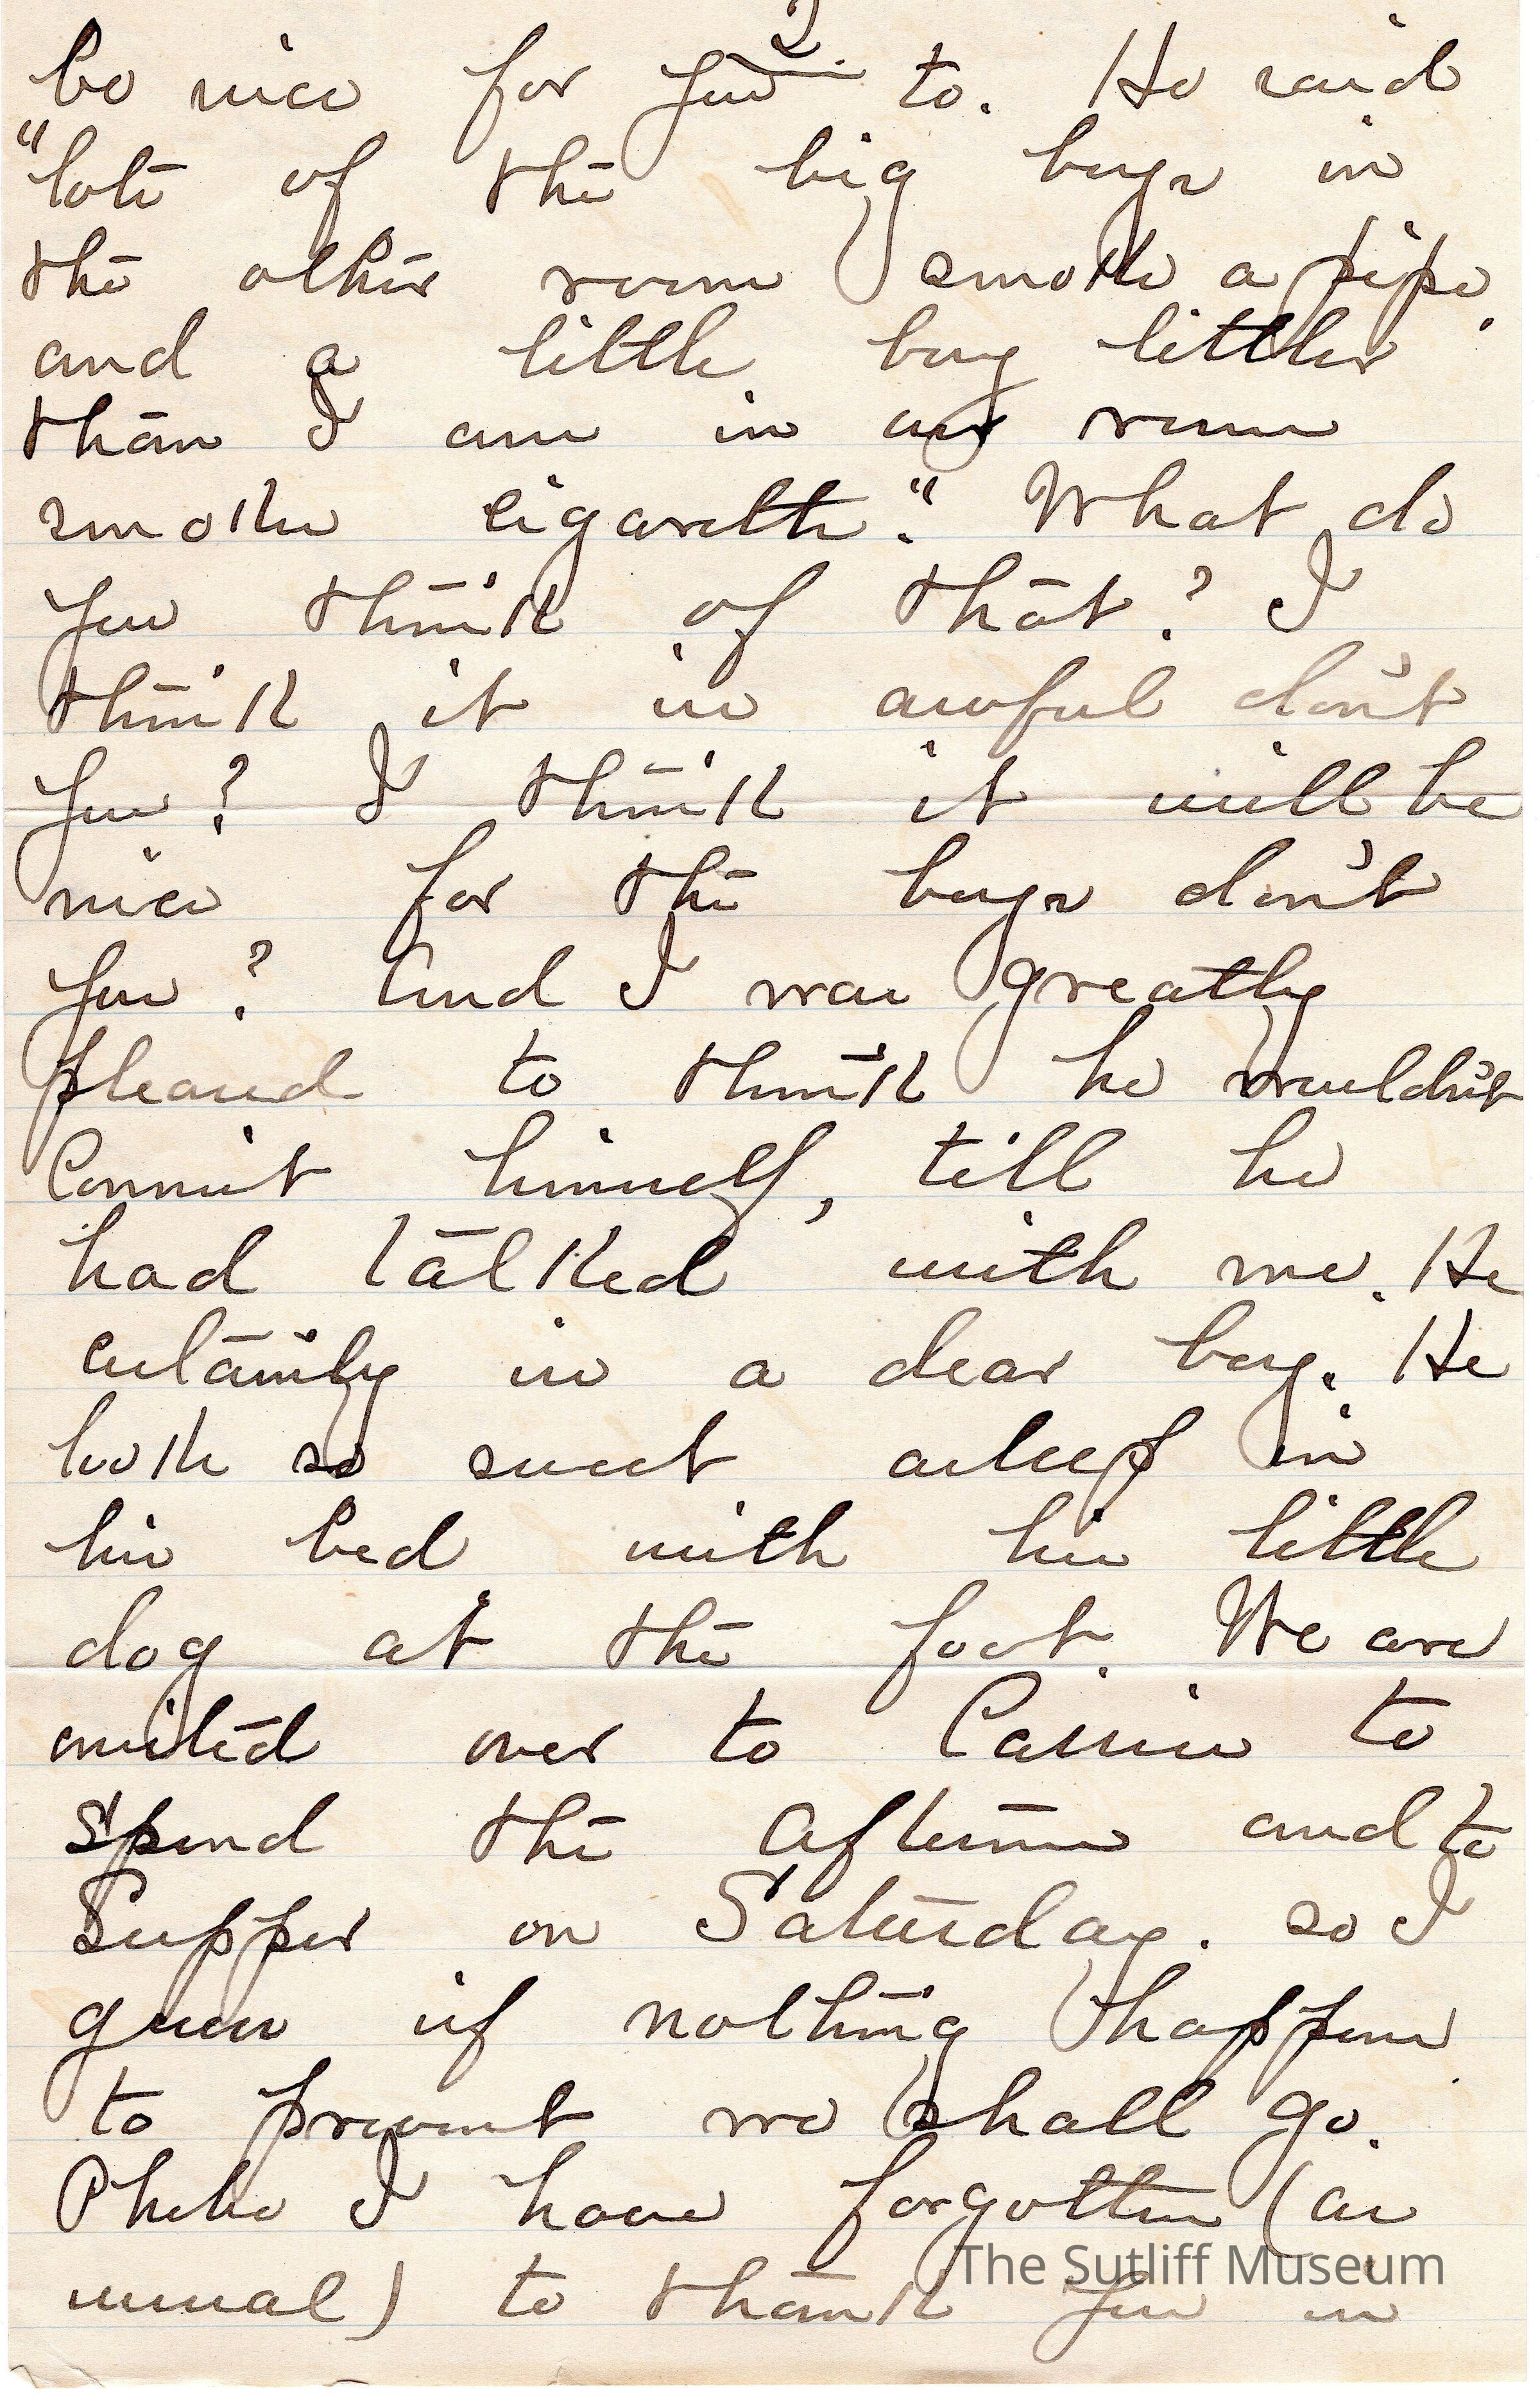 2
be nice for you to. He said
"lots of the big boys in
the other room smoke a pipe,
and a little boy littler
than I am in my room
smokes cigarette." What do
you think of that? I
think it is awful don't
you? I think it will be
nice for the boys don't
you? And I was greatly
pleased to think he wouldn't
Commit himself, till he
had talked with me. He
certainly is a dear boy. He
looks so sweet asleep in
his bed with his little
dog at the foot. We are
invited over to Cassies to
Spend the afternoon and to
Supper on Saturday. so I
guess if nothing happens
to prevent we shall go.
Phebe I have forgotten (as
usual) to thank you in
The Sutliff Museum